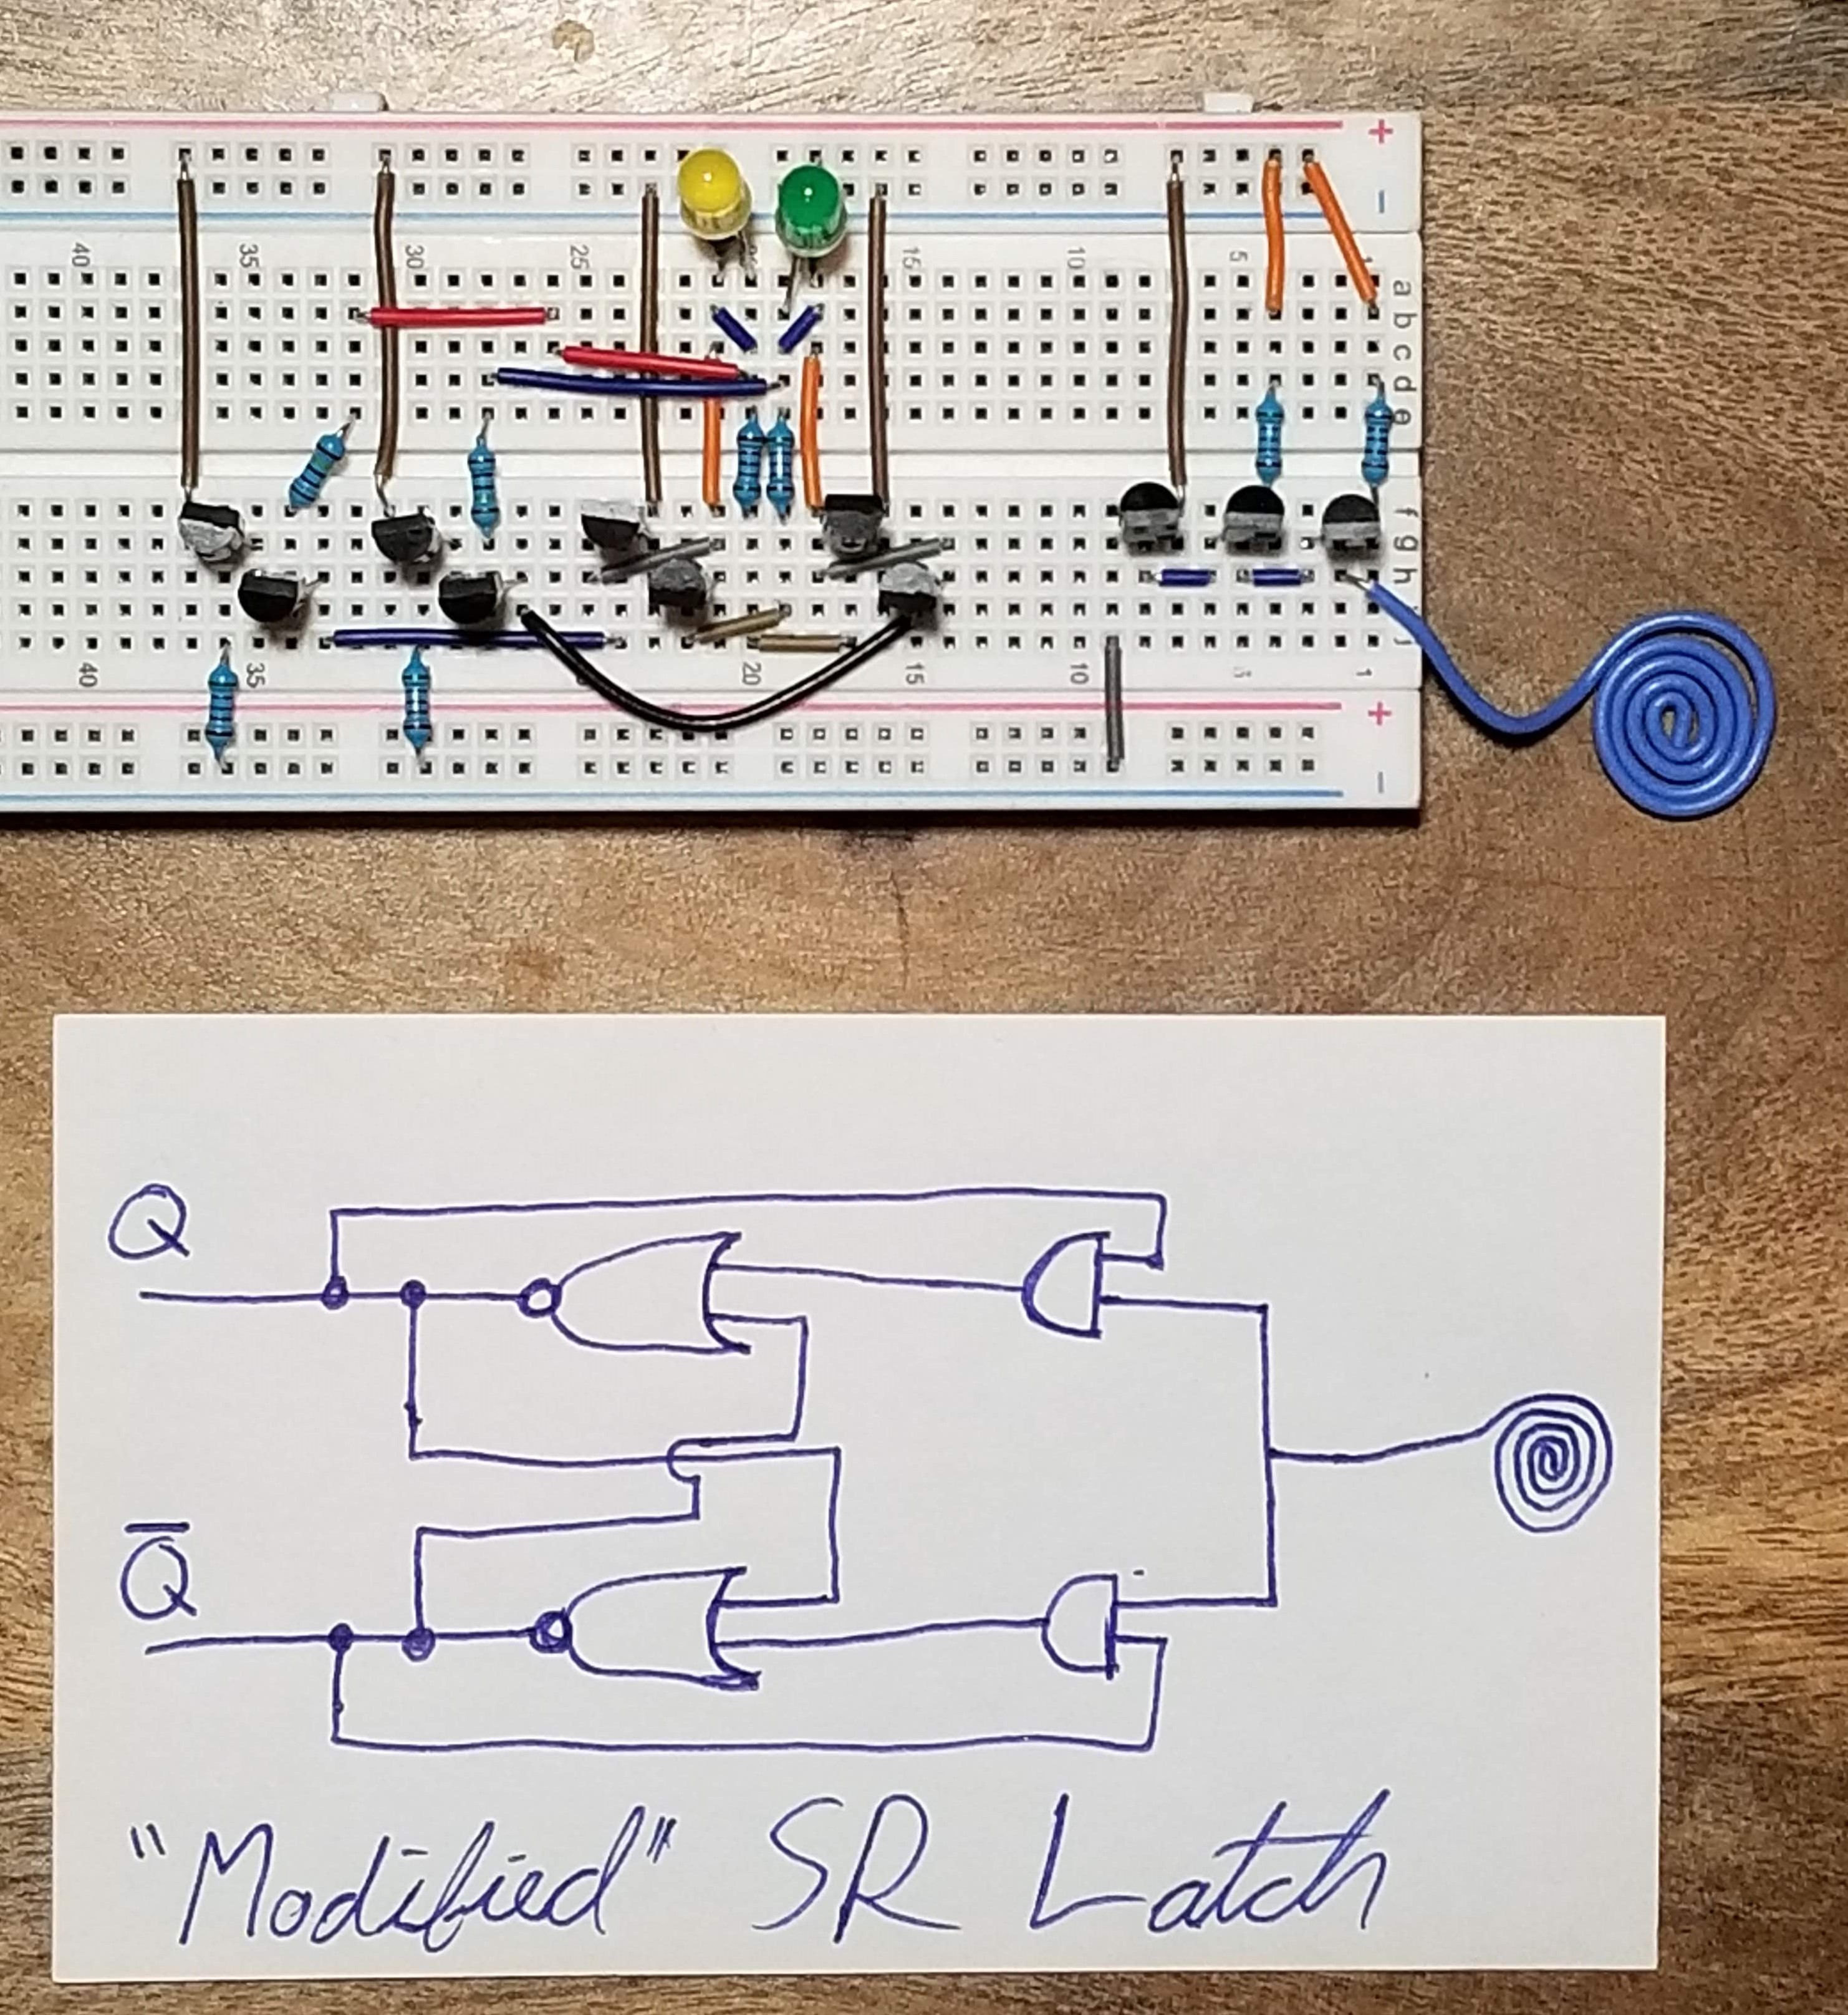 +
−
40 35 30 25 20 15 10 5 1
a
b
c
d
e
f
g
h
j
40 35 20 15 10 1
+
−
Q
Q̅
"Modified" SR Latch